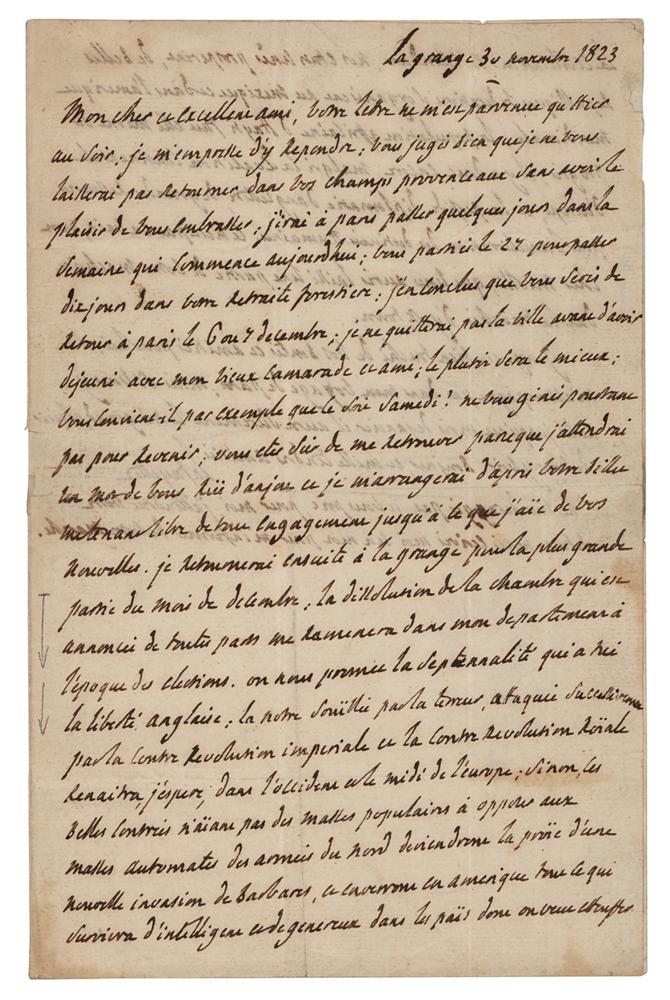 La grange 30 novembre 1823
Mon cher et excellent ami, votre lettre ne m'est parvenue qu'hier
au soir; je m'empresse d'y repondre; vous jugés bien que je ne vous
laisserai pas retourner dans vos champs provenceaux sans avoir le
plaisir de vous embrasser; j'irai à paris passer quelques jours dans la
semaine qui commence aujourdhui; vous partiés le 27 pour passer
dix jours dans votre retraite forestiere; j'en conclus que vous serés de
retour à paris le 6 ou 7 decembre; je ne quitterai pas la ville avant d'avoir
dejeuné avec mon vieux camarade et ami; le plustot sera le mieux;
vous convient-il par exemple que ce soit samedi? ne vous genés pourtant
pas pour revenir; vous etes sur de me retrouver parceque j'attendrai
un mot de vous rüe d'anjou et je m'arrangerai d'après votre billet
me tenant libre de tout engagement jusqu'à ce que j'aïe de vos
nouvelles. je retournerai ensuite à la grange pour la plus grande
partie du mois de decembre; la dissolution de la chambre qui est
annoncée de toutes parts me ramenera dans mon departement à
l'époque des elections. on nous promet la septennalité qui a tué
la liberté anglaise; la notre souïllée par la terreur, attaquée successivement
par la contre revolution imperiale et la contre revolution roïale
renaitra, j'espere, dans l'occident et le midi de l'europe; sinon, ces
belles contrées n'aïant pas des masses populaires à opposer aux
masses automates des armées du nord deviendront la proïe d'une
nouvelle invasion de Barbares, et enverront en amerique tout ce qui
survivra d'intelligent et de genereux dans les païs dont on veut etouffer